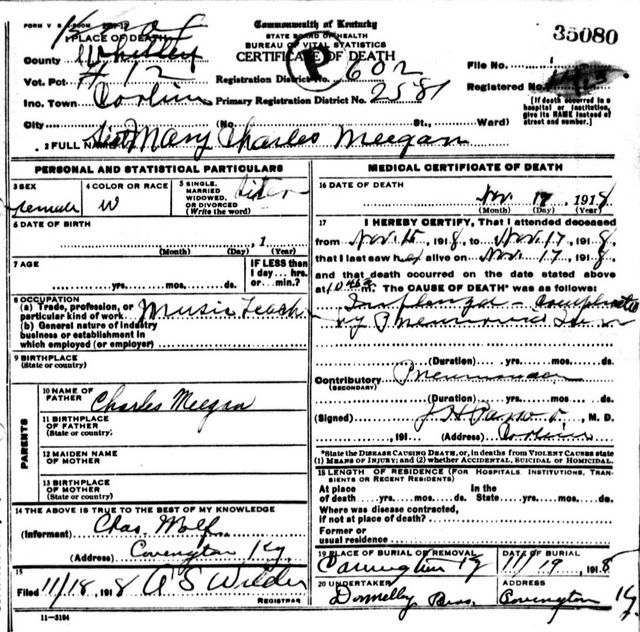 FORM V. S.
Commonwealth of Kentucky
STATE BOARD OF HEALTH
BUREAU OF VITAL STATISTICS
CERTIFICATE OF DEATH
35080
1 PLACE OF DEATH
County Whitley
Vot. Pct. #12
Ino. Town Corbin
City (No. St., Ward)
P
Registration District No. 602
Primary Registration District No. 2581
File No.
Registered No.
[If death occurred in a hospital or institution, give its NAME instead of street and number.]
2 FULL NAME Sister Mary Charles Meegan
PERSONAL AND STATISTICAL PARTICULARS
3 SEX female
4 COLOR OR RACE W
5 SINGLE, MARRIED WIDOWED, OR DIVORCED (Write the word) Sister
6 DATE OF BIRTH
(Month) (Day) (Year)
7 AGE
yrs. mos. ds.
IF LESS than 1 day... hrs. or min.?
8 OCCUPATION
(a) Trade, profession, or particular kind of work Music Teach
(b) General nature of industry business or establishment in which employed (or employer)
9 BIRTHPLACE
PARENTS
10 NAME OF FATHER Charles Meegan
11 BIRTHPLACE OF FATHER (State or country)
12 MAIDEN NAME OF MOTHER
13 BIRTHPLACE OF MOTHER (State or country)
14 THE ABOVE IS TRUE TO THE BEST OF MY KNOWLEDGE
(Informant) Chas. Wolf
(Address) Covington Ky
15
Filed 11/18, 1918 A S Wilder
REGISTRAR
11-3184
MEDICAL CERTIFICATE OF DEATH
16 DATE OF DEATH
Nov. 17, 1918
(Month) (Day) (Year)
17 I HEREBY CERTIFY, That I attended deceased
from Nov. 15, 1918, to Nov. 17, 1918,
that I last saw her alive on Nov. 17, 1918,
and that death occurred on the date stated above
at The CAUSE OF DEATH* was as follows:
Influenza - Complicated
by Pneumonia
(Duration) yrs. mos. ds.
Contributory Pneumonia
(SECONDARY)
(Duration) yrs. mos. ds.
(Signed) M. D.
, 191 (Address) Corbin
*State the DISEASE CAUSING DEATH, or, in deaths from VIOLENT CAUSES state
(1) MEANS OF INJURY; and (2) whether ACCIDENTAL, SUICIDAL or HOMICIDAL.
18 LENGTH OF RESIDENCE (FOR HOSPITALS, INSTITUTIONS, TRANSIENTS OR RECENT RESIDENTS)
At place of death yrs. mos. ds. In the State yrs. mos. ds.
Where was disease contracted, if not at place of death?
Former or usual residence
19 PLACE OF BURIAL OR REMOVAL Covington Ky
DATE OF BURIAL 11/19, 1918
20 UNDERTAKER Donnelly Bros.
ADDRESS Covington Ky.